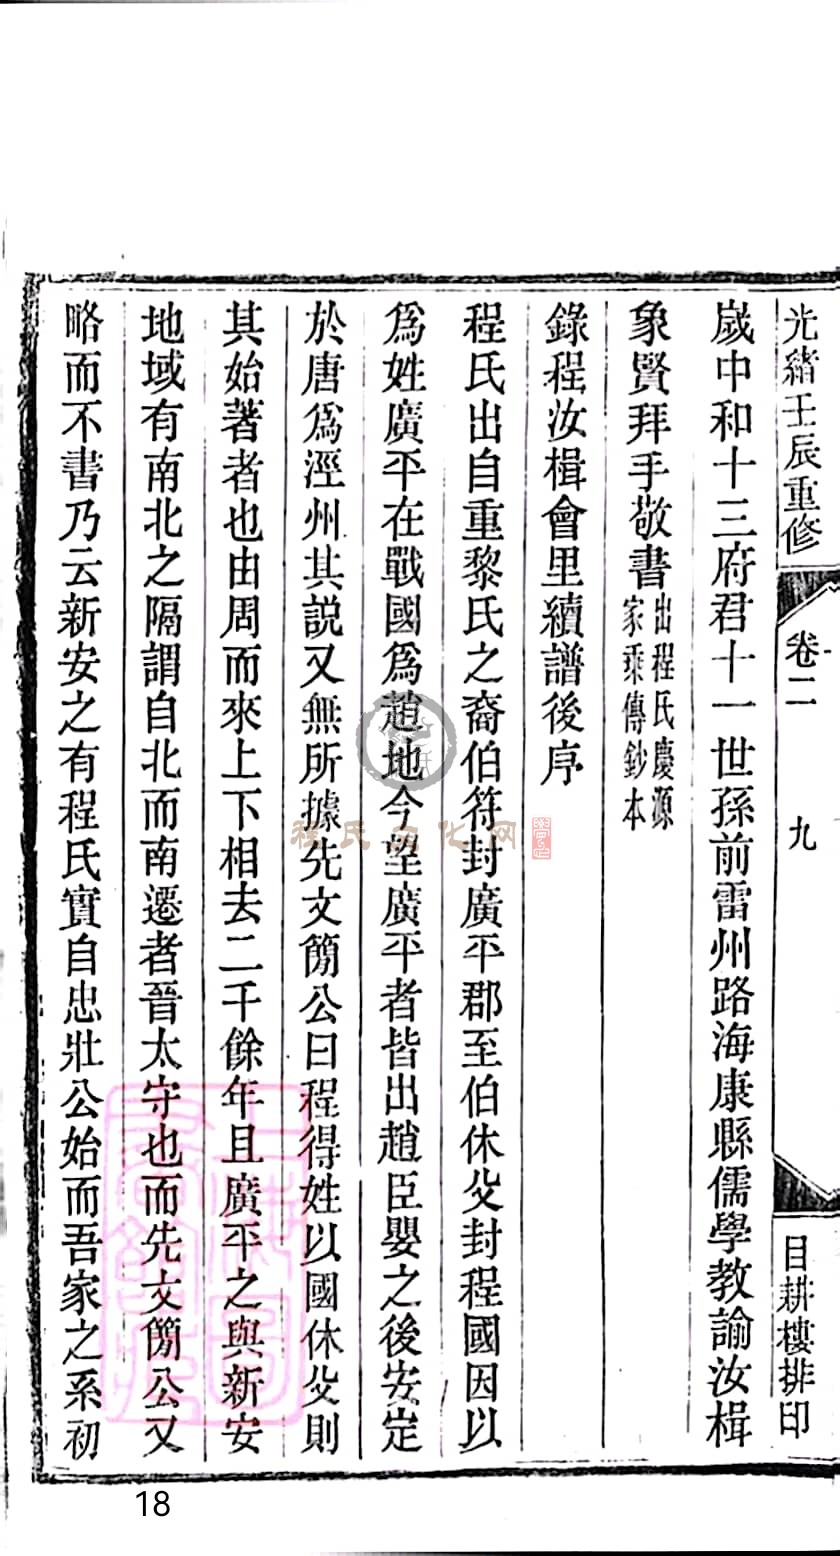 光緒壬辰重修
卷二
九
目耕樓排印
歲中和十三府君十一世孫前雷州路海康縣儒學教諭汝楫
象賢拜手敬書出程氏慶源家乘傳鈔本
錄程汝楫會里續譜後序
程氏出自重黎氏之裔伯符封廣平郡至伯休父封程國因以
爲姓廣平在戰國爲趙地今望廣平者皆出趙臣嬰之後安定
於唐爲涇州其說又無所據先文簡公曰程得姓以國休父則
其始著者也由周而來上下相去二千餘年且廣平之與新安
地域有南北之隔謂自北而南遷者晉太守也而先文簡公又
略而不書乃云新安之有程氏實自忠壯公始而吾家之系初
程氏文化网
18